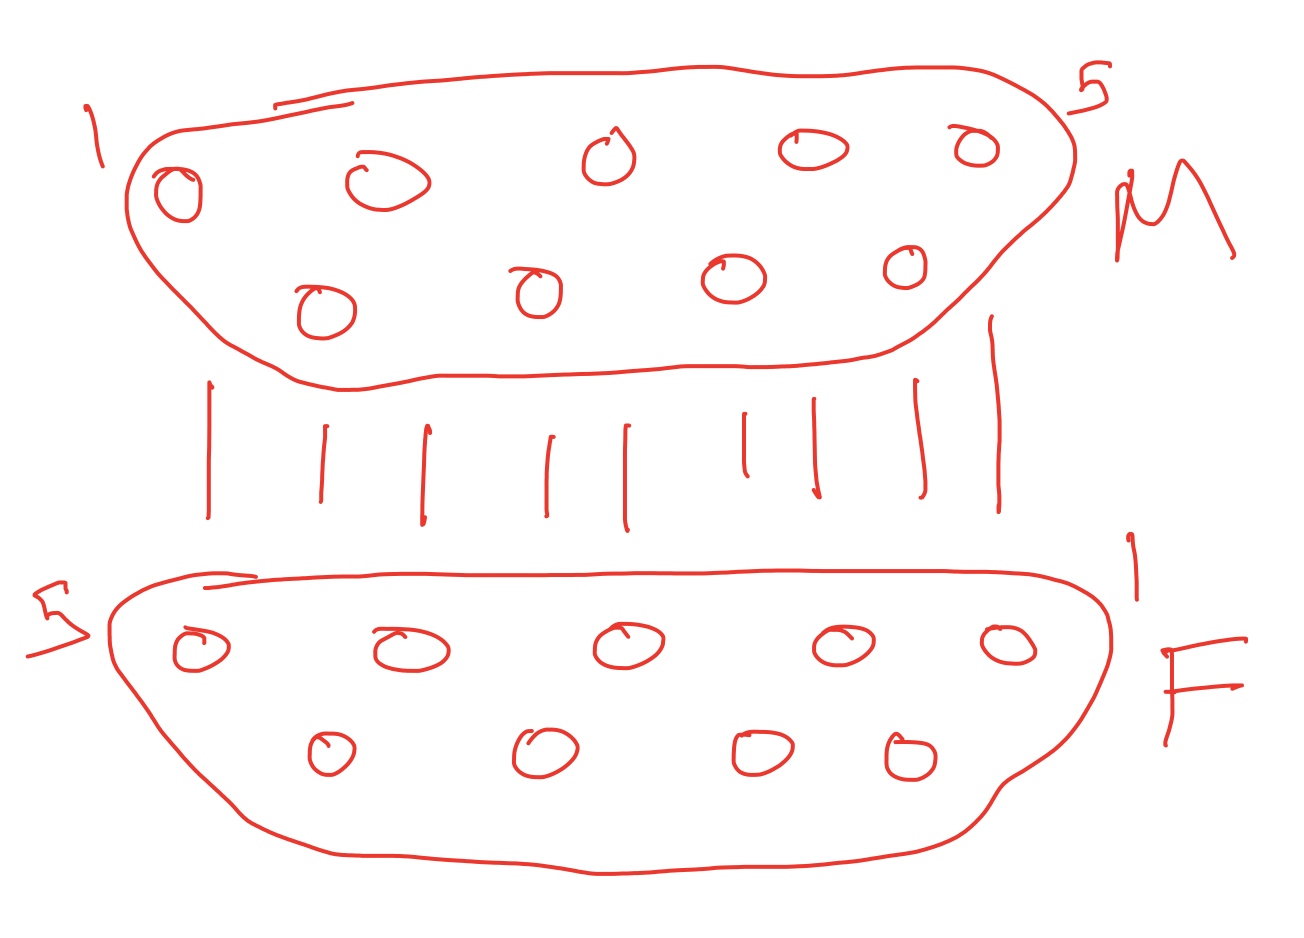 1 5
M
5 1
F